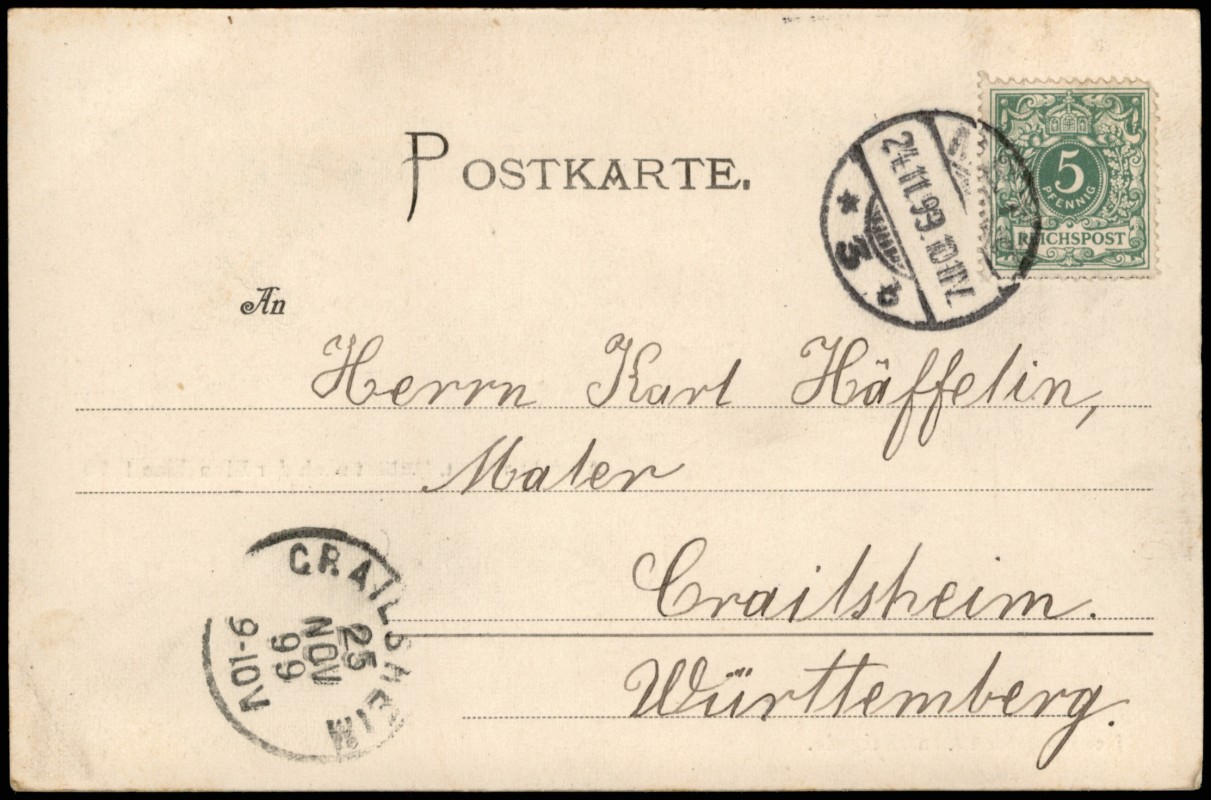 POSTKARTE.
24.11.99.10-11V.
* 3 a
5
PFENNIG
REICHSPOST
An
Herrn Karl Häffelin,
Maler
Crailsheim.
Württemberg.
CRAILSHEIM
25
NOV
99